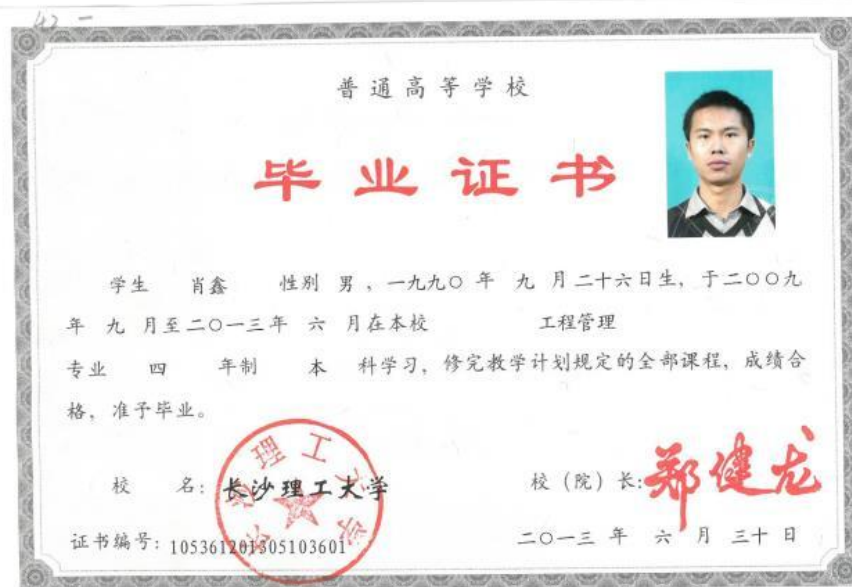 42 一
普通高等学校
毕业证书
学生 肖鑫 性别 男，一九九〇年 九 月二十六日生，于二〇〇九
年 九 月至二〇一三年 六 月在本校 工程管理
专业 四 年制 本 科学习，修完教学计划规定的全部课程，成绩合
格，准予毕业。
校 名：长沙理工大学
校（院）长：郑健龙
证书编号：105361201305103601
二〇一三 年 六 月 三十 日
长沙理工大学